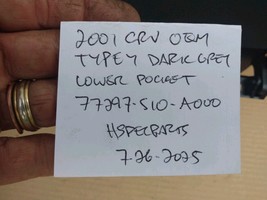 2001 CRV OEM
TYPE 4 DARK GREY
LOWER POCKET
77297-S10-A000
HSPECPARTS
7-26-2025